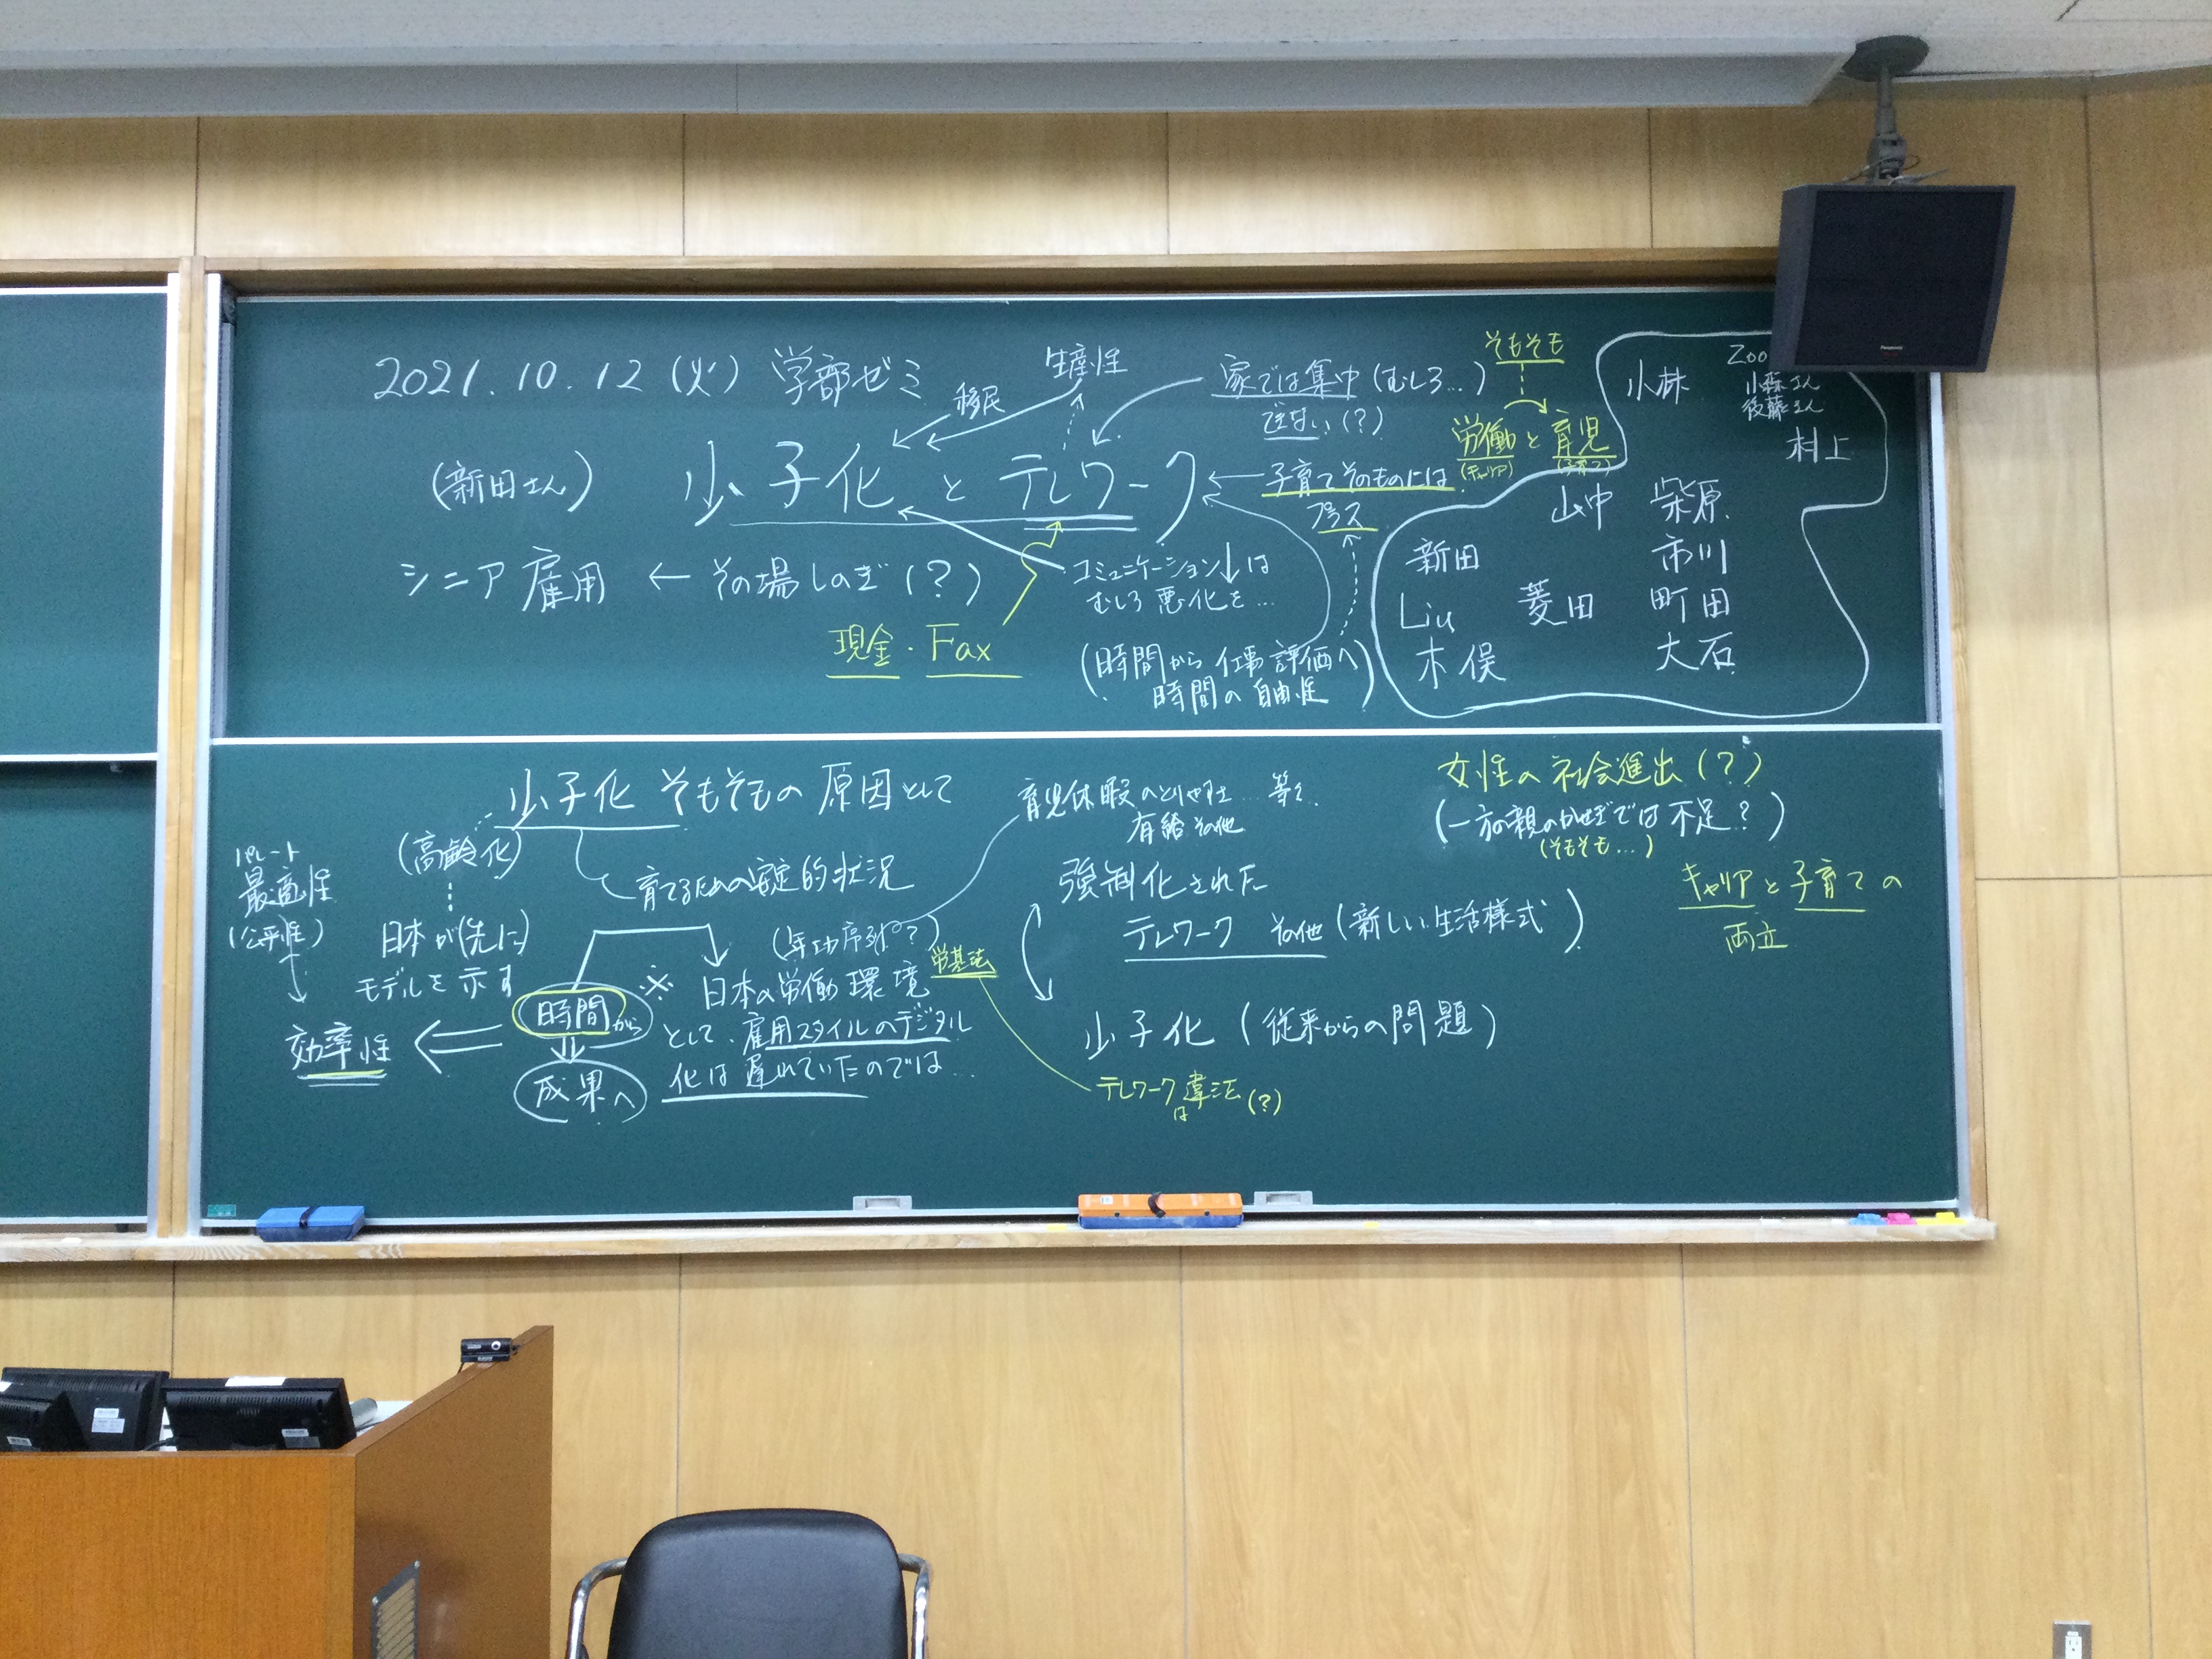 2021.10.12 (火) 学部ゼミ
移民
生産性
家では集中 (むしろ…)
できない (?)
そもそも
労働と育児
(キャリア) (子育て)
小林
Zoo
小森さん
後藤さん
村上
(新田さん)
少子化 と テレワーク
子育てそのものには
プラス
山中 柴原
新田 市川
Liu 菱田 町田
木俣 大石
シニア雇用 ← その場しのぎ (?)
コミュニケーション↓は
むしろ悪化を…
現金・Fax
(時間から仕事評価へ)
時間の自由性
少子化 そもそもの原因として
(高齢化)
育児休暇のとりやすさ…等々
有給その他
女性の社会進出 (?)
(一方の親のかせぎでは不足?)
(そもそも…)
キャリアと子育ての
両立
パレート
最適性
(公平性)
効率性
育てるための安定的状況
日本が(先に)
モデルを示す
時間から
成果へ
(年功序列?)
※ 日本の労働環境
として、雇用スタイルのデジタル
化は遅れていたのでは…
労基法
強制化された
テレワーク その他 (新しい生活様式)
少子化 (従来からの問題)
テレワークは違法 (?)
Panasonic